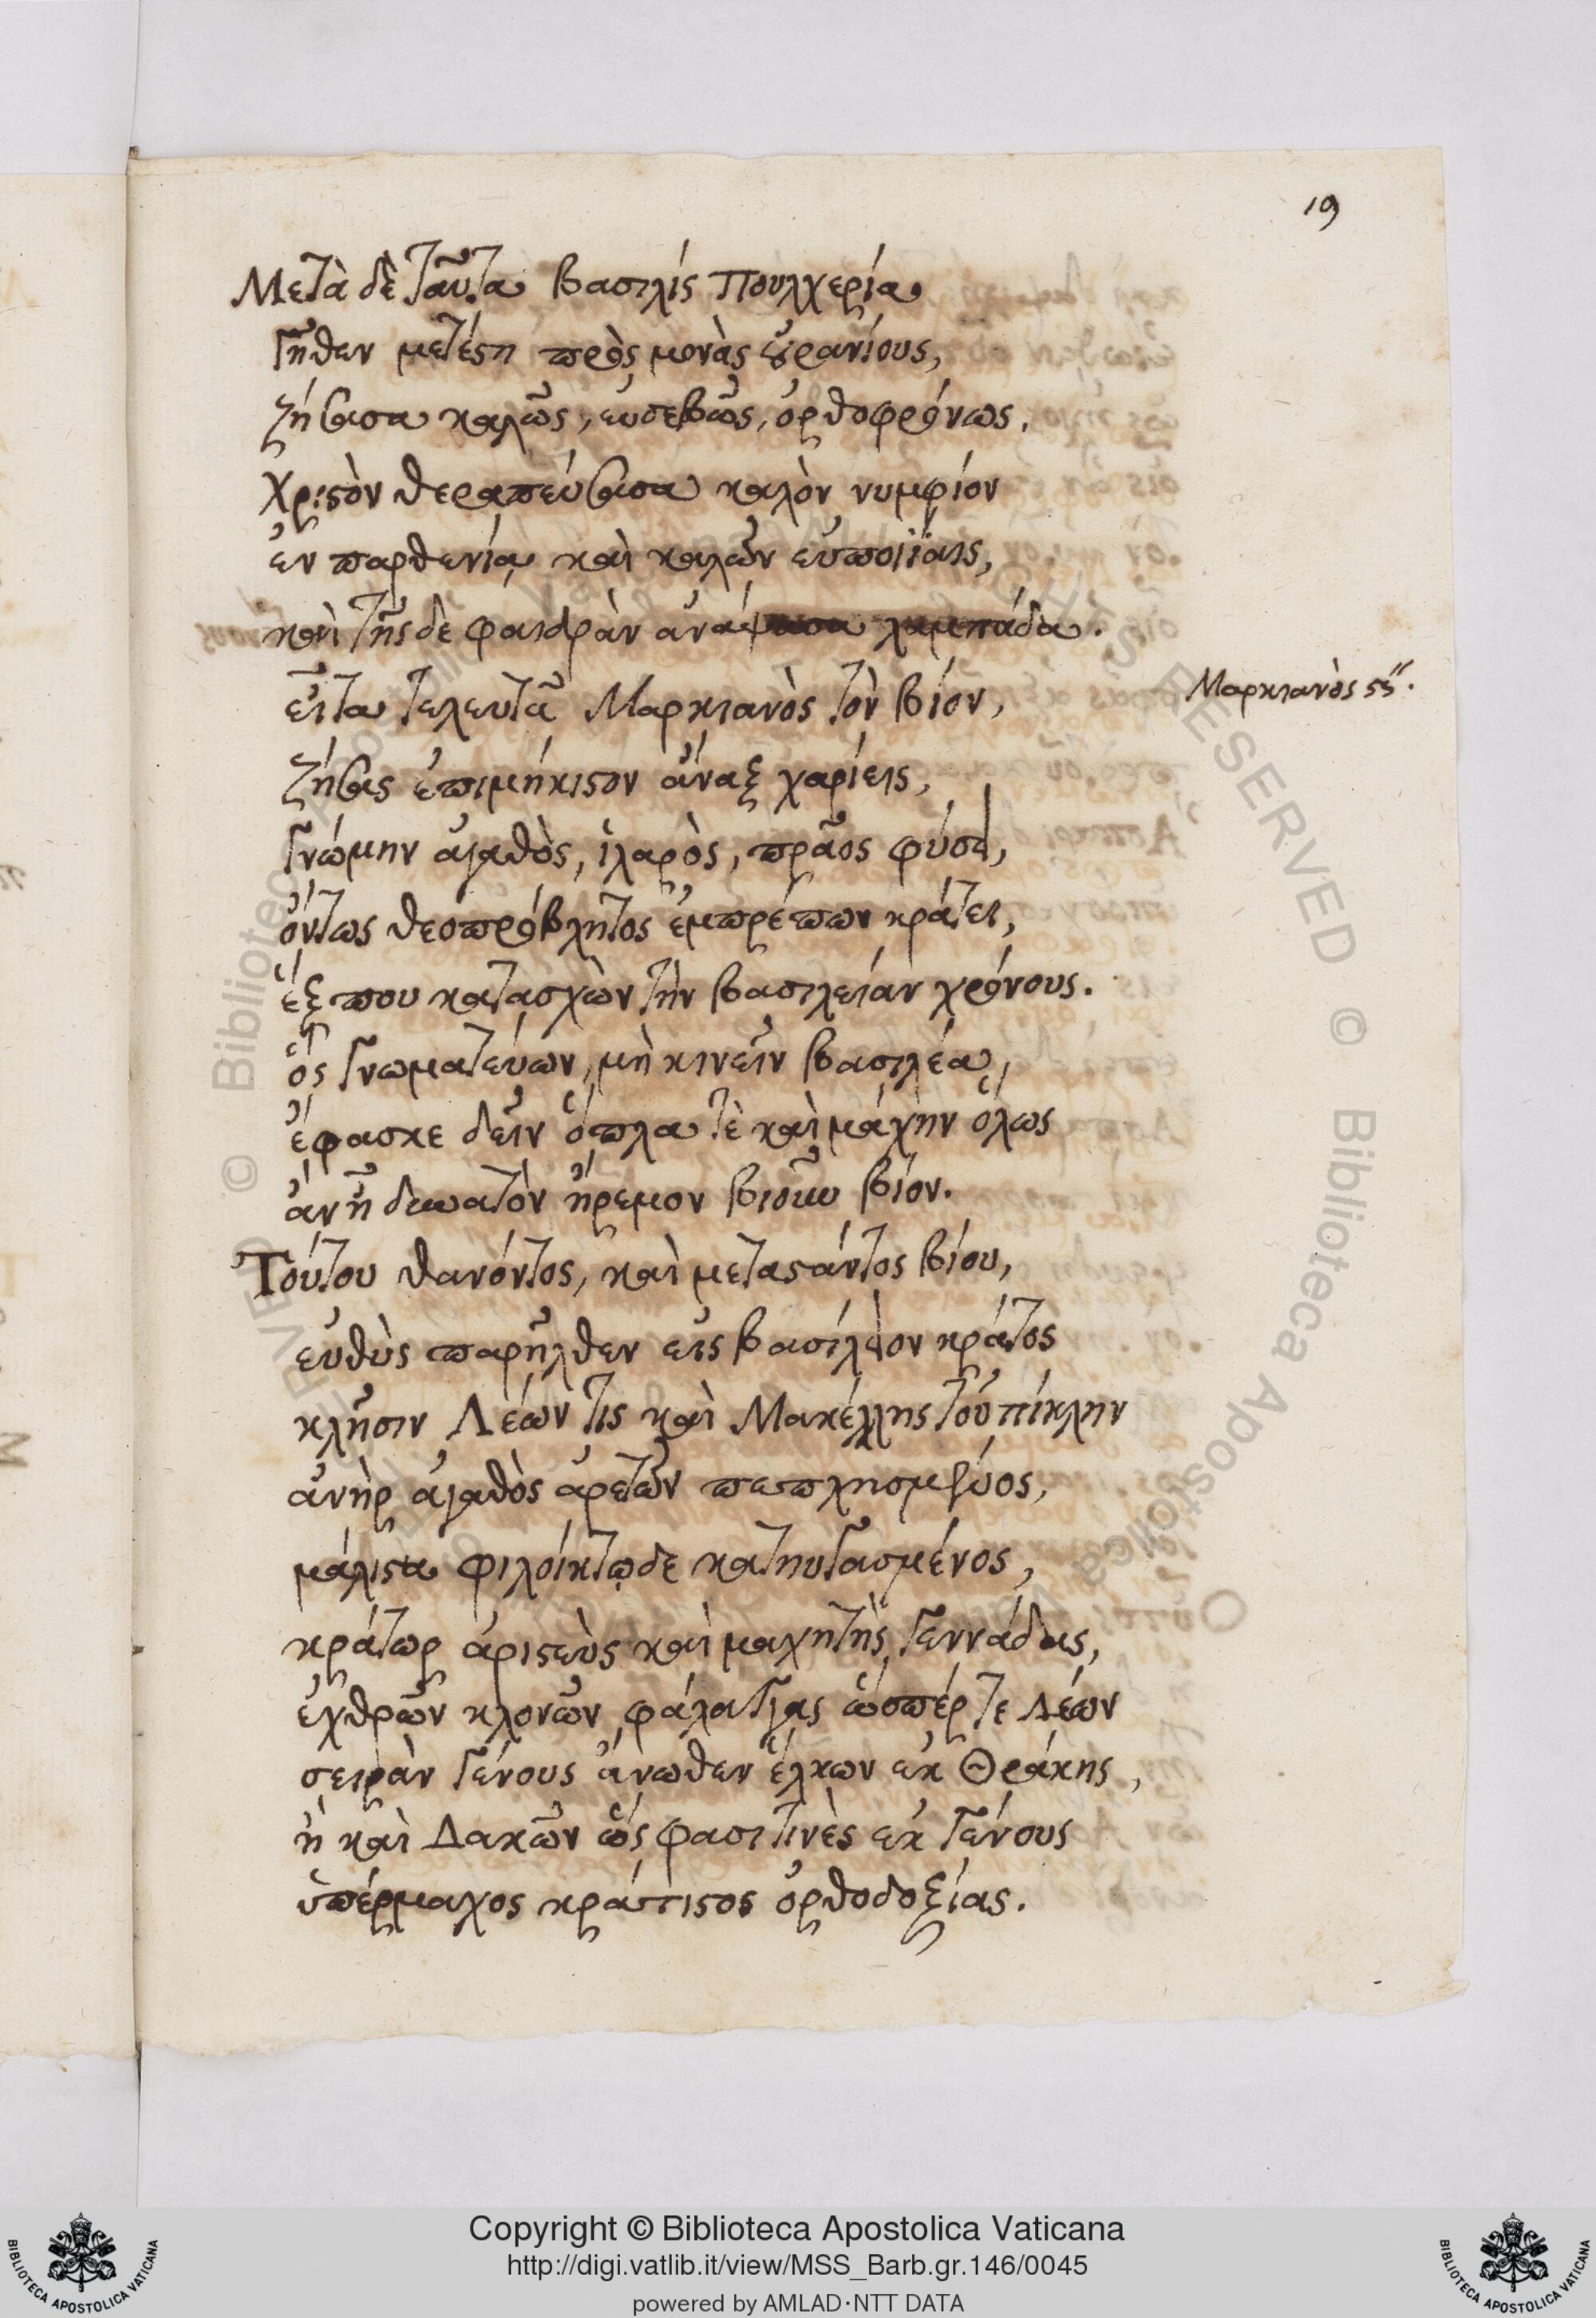 19
Μετὰ δὲ ταῦτα βασιλὶς Πουλχερία
γῆθεν μετέστη πρὸς μονὰς οὐρανίους,
ζήσασα καλῶς, εὐσεβῶς, ὀρθοφρόνως.
Χριστὸν θεραπεύσασα καλὸν νυμφίον
ἐν παρθενίᾳ καὶ καλῶν εὐποιΐαις,
καὶ τῆς δε φαιδρὰν ἀνάψασα λαμπάδα.
εἶτα τελευτᾶ Μαρκιανὸς τὸν βίον,
Μαρκιανὸς
ζήσας ἐπιμήκιστον ἄναξ χαρίεις,
γνώμην ἀγαθὸς, ἱλαρὸς, πρᾶος φύσει,
ὄντως θεοπρόβλητος ἐμπρέπων κράτει,
ἕξ που κατασχὼν τὴν βασιλείαν χρόνους.
ὃς γνωματεύων, μὴ κινεῖν βασιλέα,
ἔφασκε δεῖν ὅπλα τὲ καὶ μάχην ὅλως
ἂν ᾖ δυνατὸν ἤρεμον βιοῦν βίον.
Τούτου θανόντος, καὶ μεταστάντος βίου,
εὐθὺς παρῆλθεν εἰς βασίλειον κράτος
κλῆσιν Λέων τις καὶ Μακέλλης τοὐπίκλην
ἀνὴρ ἀγαθὸς ἀρετῶν πεπλησμένος,
μάλιστα φιλοίκτῳ δε κατηυγασμένος,
κράτωρ ἀριστεὺς καὶ μαχητὴς γεννάδας,
ἐχθρῶν κλονῶν φάλαγγας ὡσπέρ τε λέων
σειρὰν γένους ἄνωθεν ἕλκων ἐκ Θράκης,
ἢ καὶ Δακῶν ὥς φασι τινὲς ἐκ γένους
ὑπέρμαχος κράτιστος ὀρθοδοξίας.
© Biblioteca Apostolica Vaticana
Copyright © Biblioteca Apostolica Vaticana
http://digi.vatlib.it/view/MSS_Barb.gr.146/0045
powered by AMLAD·NTT DATA
BIBLIOTECA APOSTOLICA VATICANA
BIBLIOTECA APOSTOLICA VATICANA